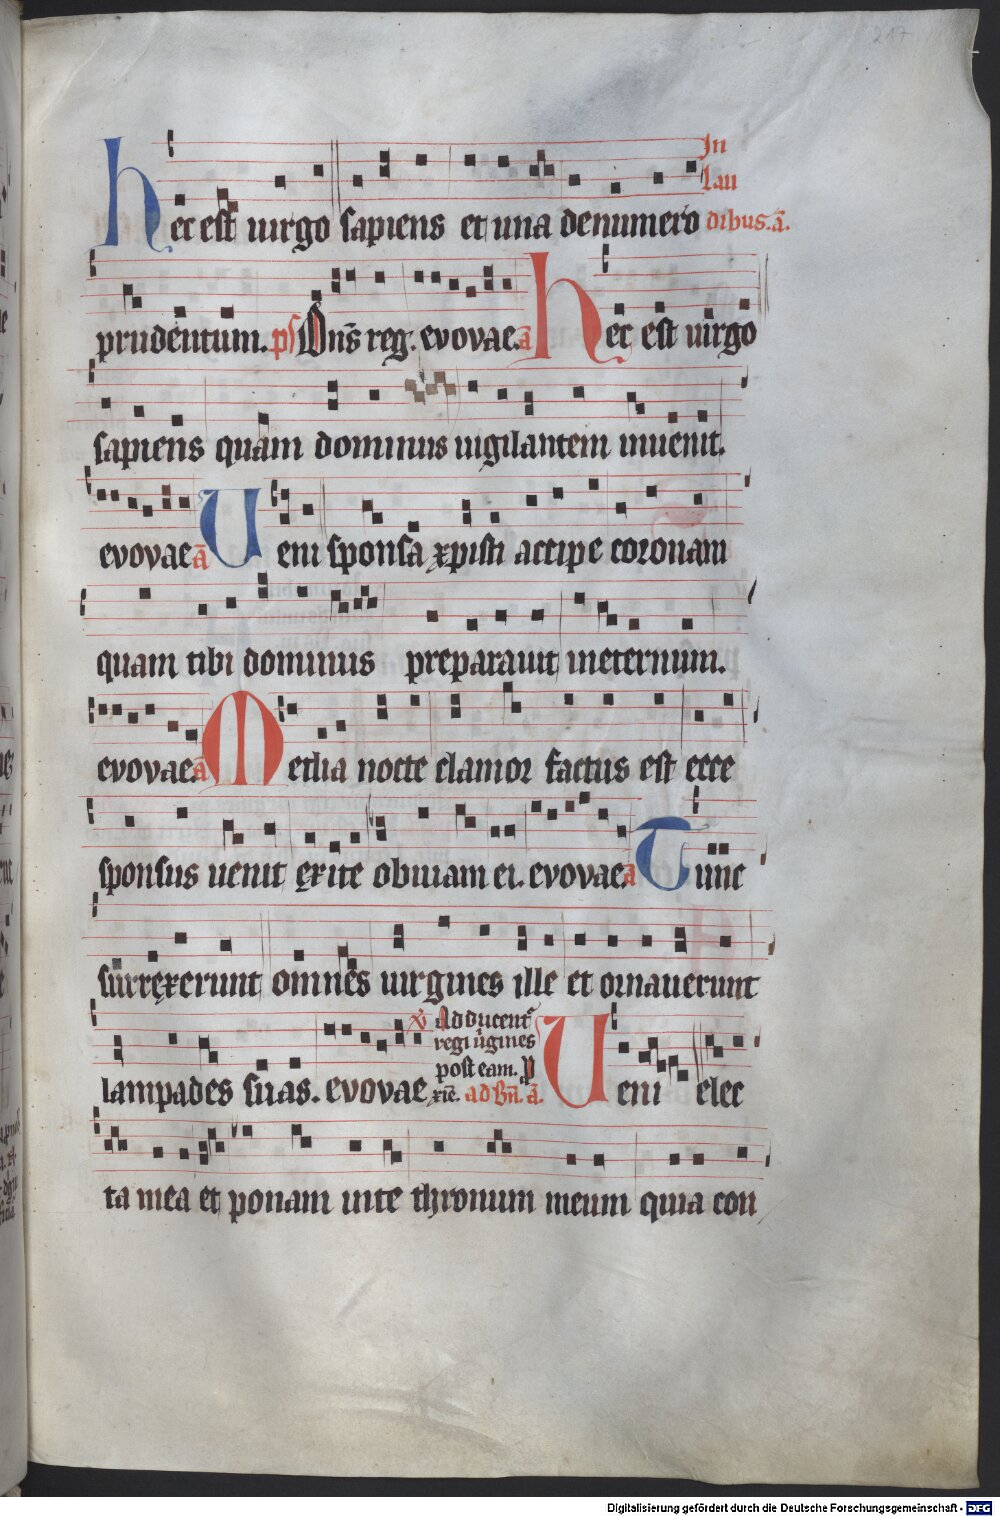 217
In
Lau
hec est uirgo sapiens et una denumero dibus. ā.
prudentum. ps Dn̄s reg. evovae. ā hec est uirgo
sapiens quam dominus uigilantem inuenit.
evovae ā Ueni sponsa xpisti accipe coronam
quam tibi dominus preparauit ineternum.
evovae. ā Media nocte clamor factus est ecce
sponsus uenit exite obuiam ei. evovae. ā Tunc
surrexerunt omnes uirgines ille et ornauerunt
lampades suas. evovae
Adducent᷑
regi u̇gines
post eam.
ad Bn̄. ā. Ueni elec
ta mea et ponam inte thronum meum quia con
Digitalisierung gefördert durch die Deutsche Forschungsgemeinschaft - DFG